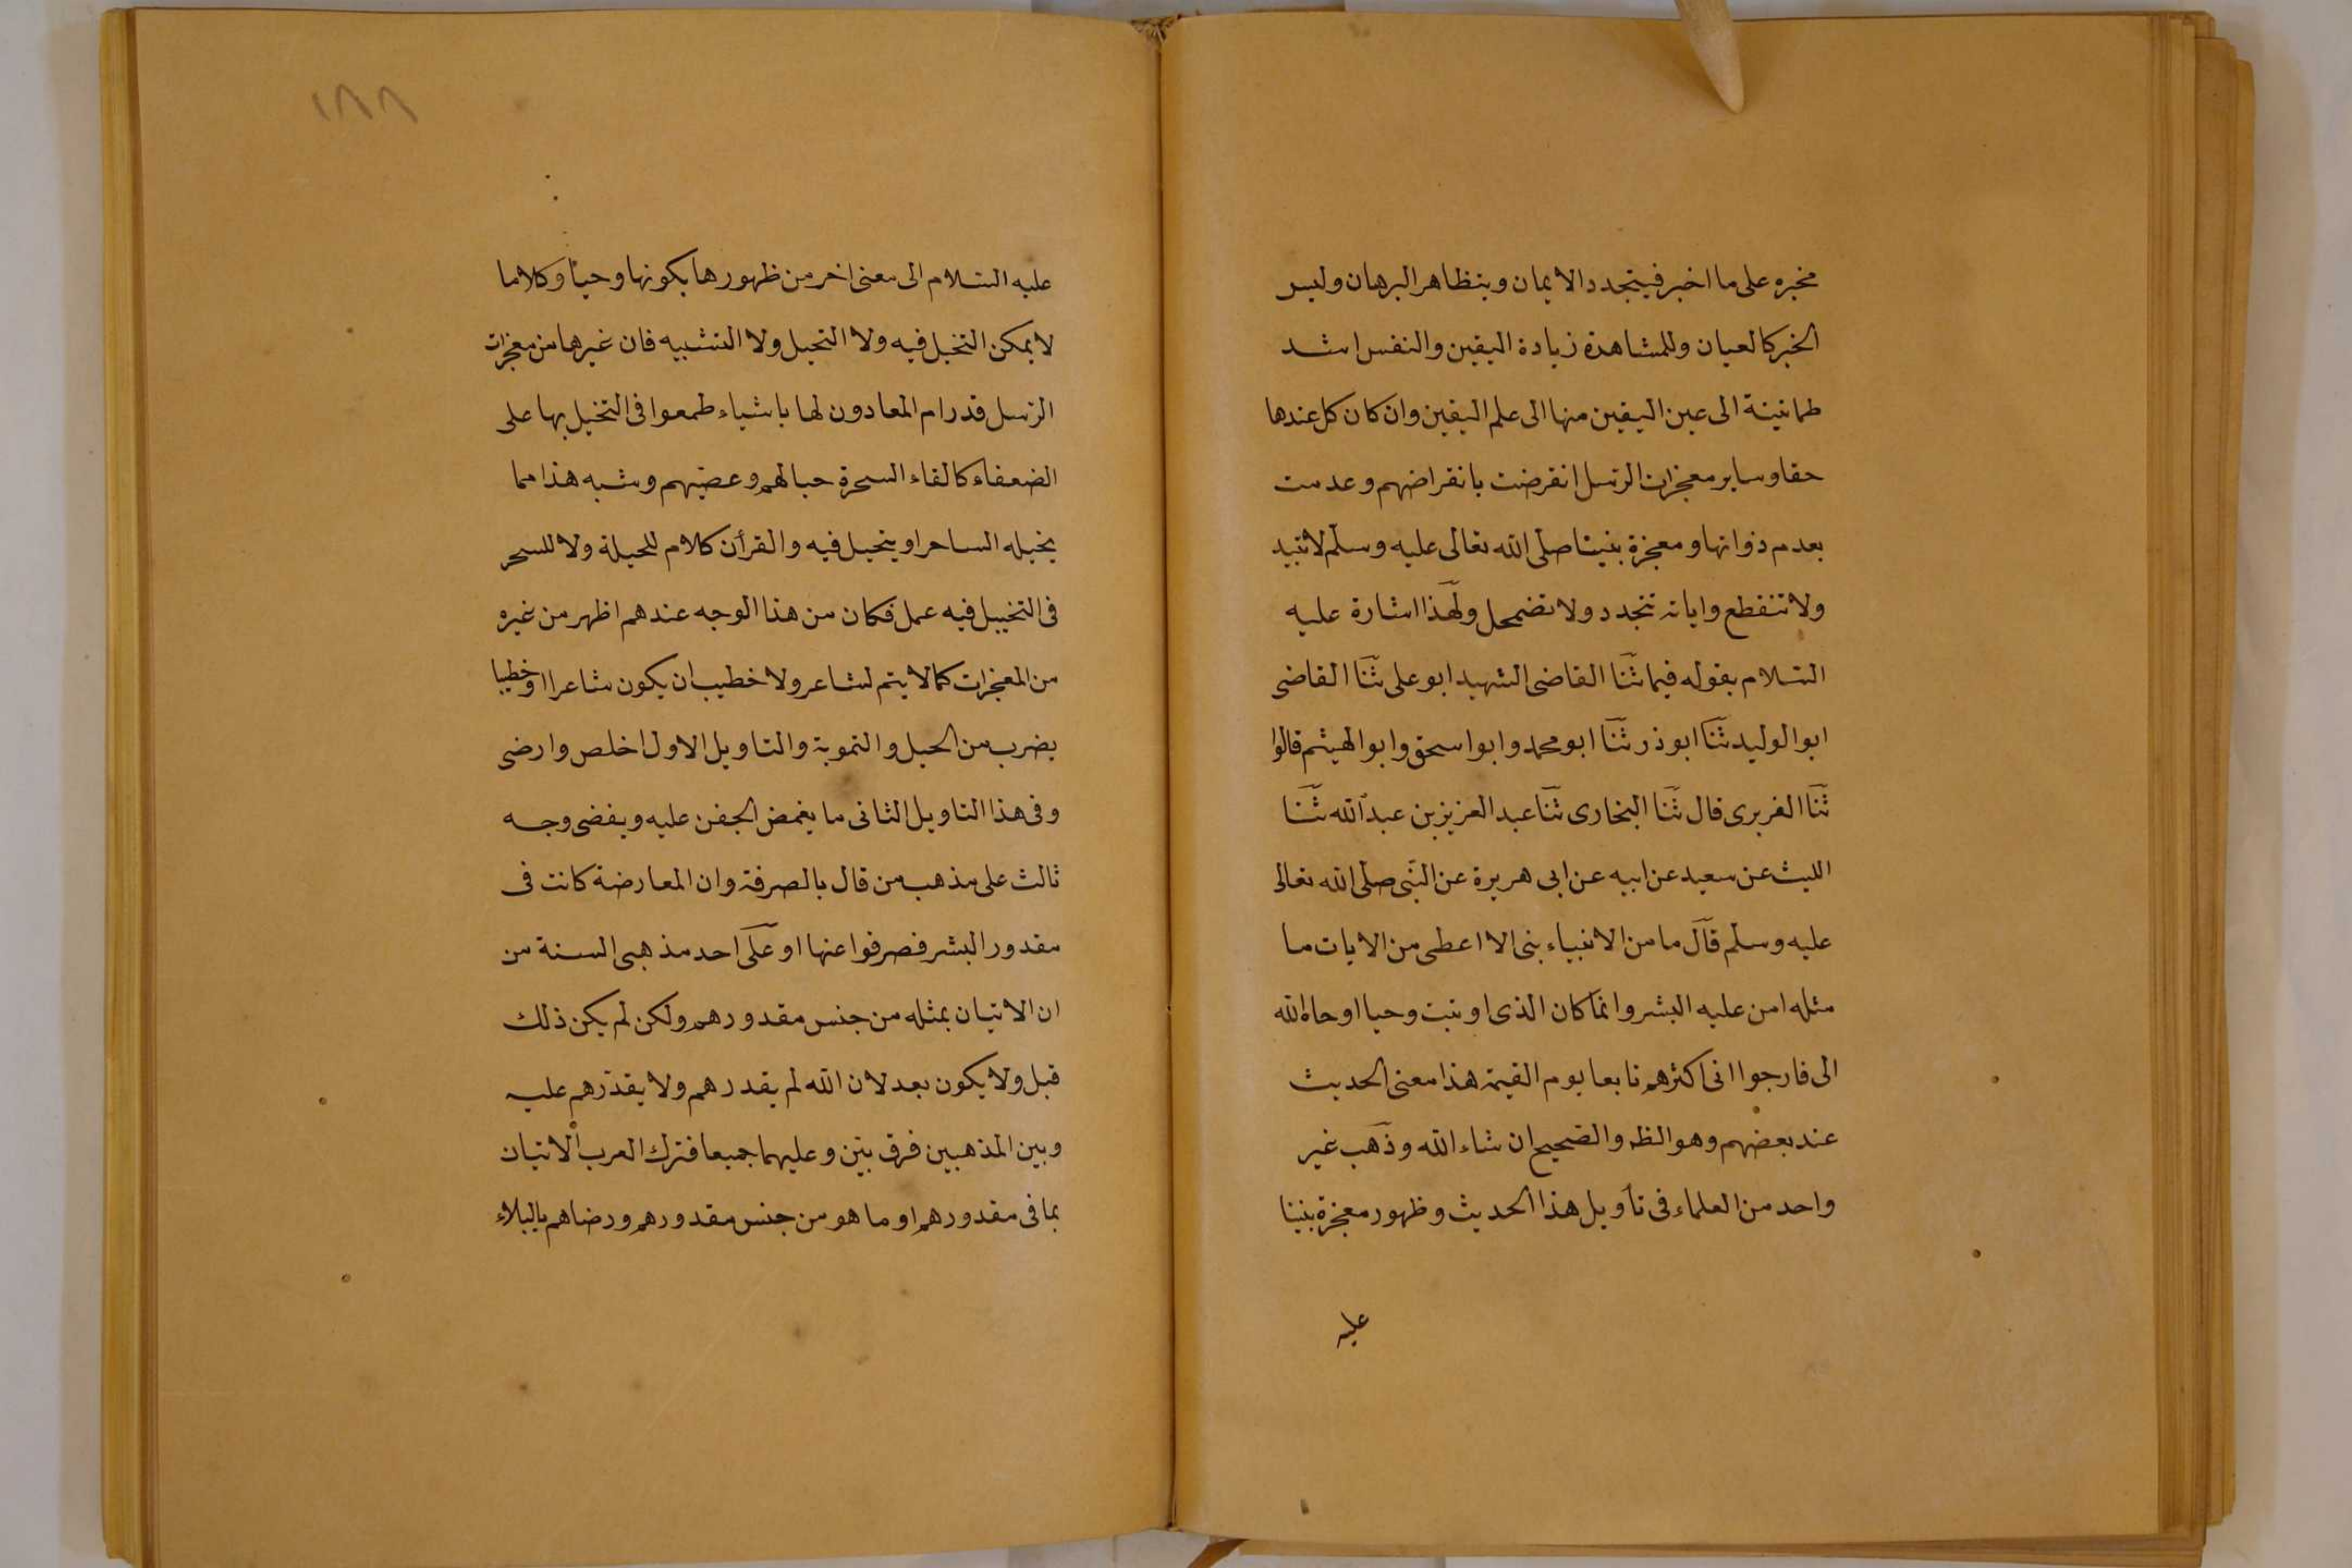 مخبره على ما اخبر فيتجدد الايمان ويتظاهر البرهان وليس
الخبر كالعيان وللمشاهدة زيادة اليقين والنفس اشد
طمانينة الى عين اليقين منها الى علم اليقين وان كان كل عندها
حقا وساير معجزات الرّسل انقرضت بانقراضهم وعدمت
بعدم ذواتها ومعجزة نبيّنا صلّى الله تعالى عليه وسلّم لا تبيد
ولا تنقطع واياته تتجدد ولا تضمحل ولهذا اشارة عليه
السّلام بقوله فيما ثنا القاضى الشهيد ابو على ثنا القاضى
ابو الوليد ثنا ابو ذر ثنا ابو محمد وابو اسحق وابو الهيثم قالوا
ثنا الفربرى قال ثنا البخارى ثنا عبد العزيز بن عبد الله ثنا
الليث عن سعيد عن ابيه عن ابى هريرة عن النّبى صلّى الله تعالى
عليه وسلّم قال ما من الانبياء نبى الا اعطى من الايات ما
مثله امن عليه البشر وانما كان الذى اوتيت وحيا اوحاه الله
الى فارجوا انى اكثرهم تابعا يوم القيمة هذا معنى الحديث
عند بعضهم وهو الظ والصّحيح ان شاء الله وذهب غير
واحد من العلماء فى تأويل هذا الحديث وظهور معجزة نبينا
عليه
١٨٨
عليه السّلام الى معنى اخر من ظهورها بكونها وحيا وكلاما
لا يمكن التخيل فيه ولا التحيل ولا التشبيه فان غيرها من معجزات
الرّسل قد رام المعادون لها باشياء طمعوا فى التخيل بها على
الضعفاء كالقاء السحرة حبالهم وعصيّهم وشبه هذا مما
يخيله الساحر او يتحيل فيه والقرأن كلام للحيلة ولا للسحر
فى التخييل فيه عمل فكان من هذا الوجه عندهم اظهر من غيره
من المعجزات كما لا يتم لشاعر ولا خطيب ان يكون شاعرا او خطيبا
بضرب من الحيل والتموية والتاويل الاول اخلص وارضى
وفى هذا التاويل الثانى ما يغمض الجفن عليه ويغضى وجه
ثالث على مذهب من قال بالصرفة وان المعارضة كانت فى
مقدور البشر فصرفوا عنها او على احد مذهبى السنة من
ان الاتيان بمثله من جنس مقدورهم ولكن لم يكن ذلك
قبل ولا يكون بعد لان الله لم يقدرهم ولا يقدّرهم عليه
وبين المذهبين فرق بيّن وعليهما جميعا فترك العرب الاتيان
بما فى مقدورهم او ما هو من جنس مقدورهم ورضاهم بالبلاء